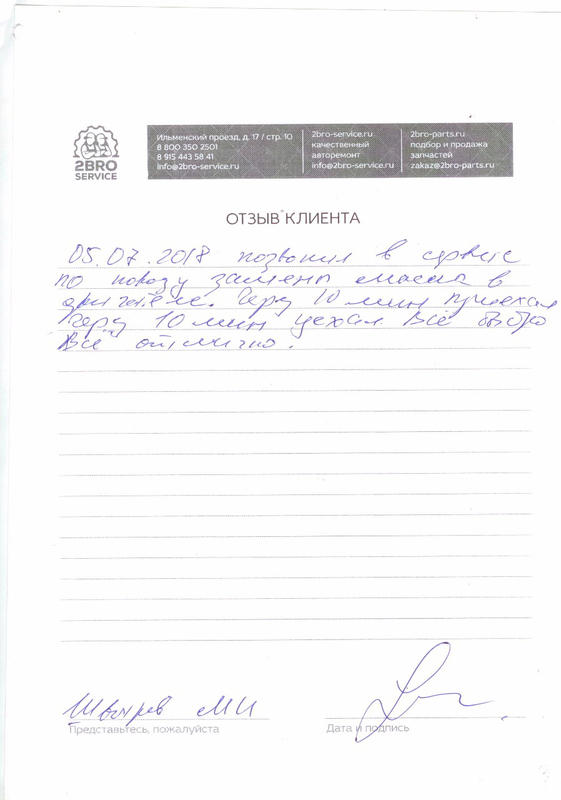 2BRO
SERVICE
Ильменский проезд, д. 17 / стр. 10
8 800 350 2501
8 915 443 58 41
info@2bro-service.ru
2bro-service.ru
качественный
авторемонт
info@2bro-service.ru
2bro-parts.ru
подбор и продажа
запчастей
zakaz@2bro-parts.ru
ОТЗЫВ КЛИЕНТА
05.07.2018 позвонил в сервис
по поводу замены масла в
двигателе. Через 10 мин приехал
Через 10 мин уехал. Всё быстро
Всё отлично.
МИ
Представьтесь, пожалуйста
Дата и подпись